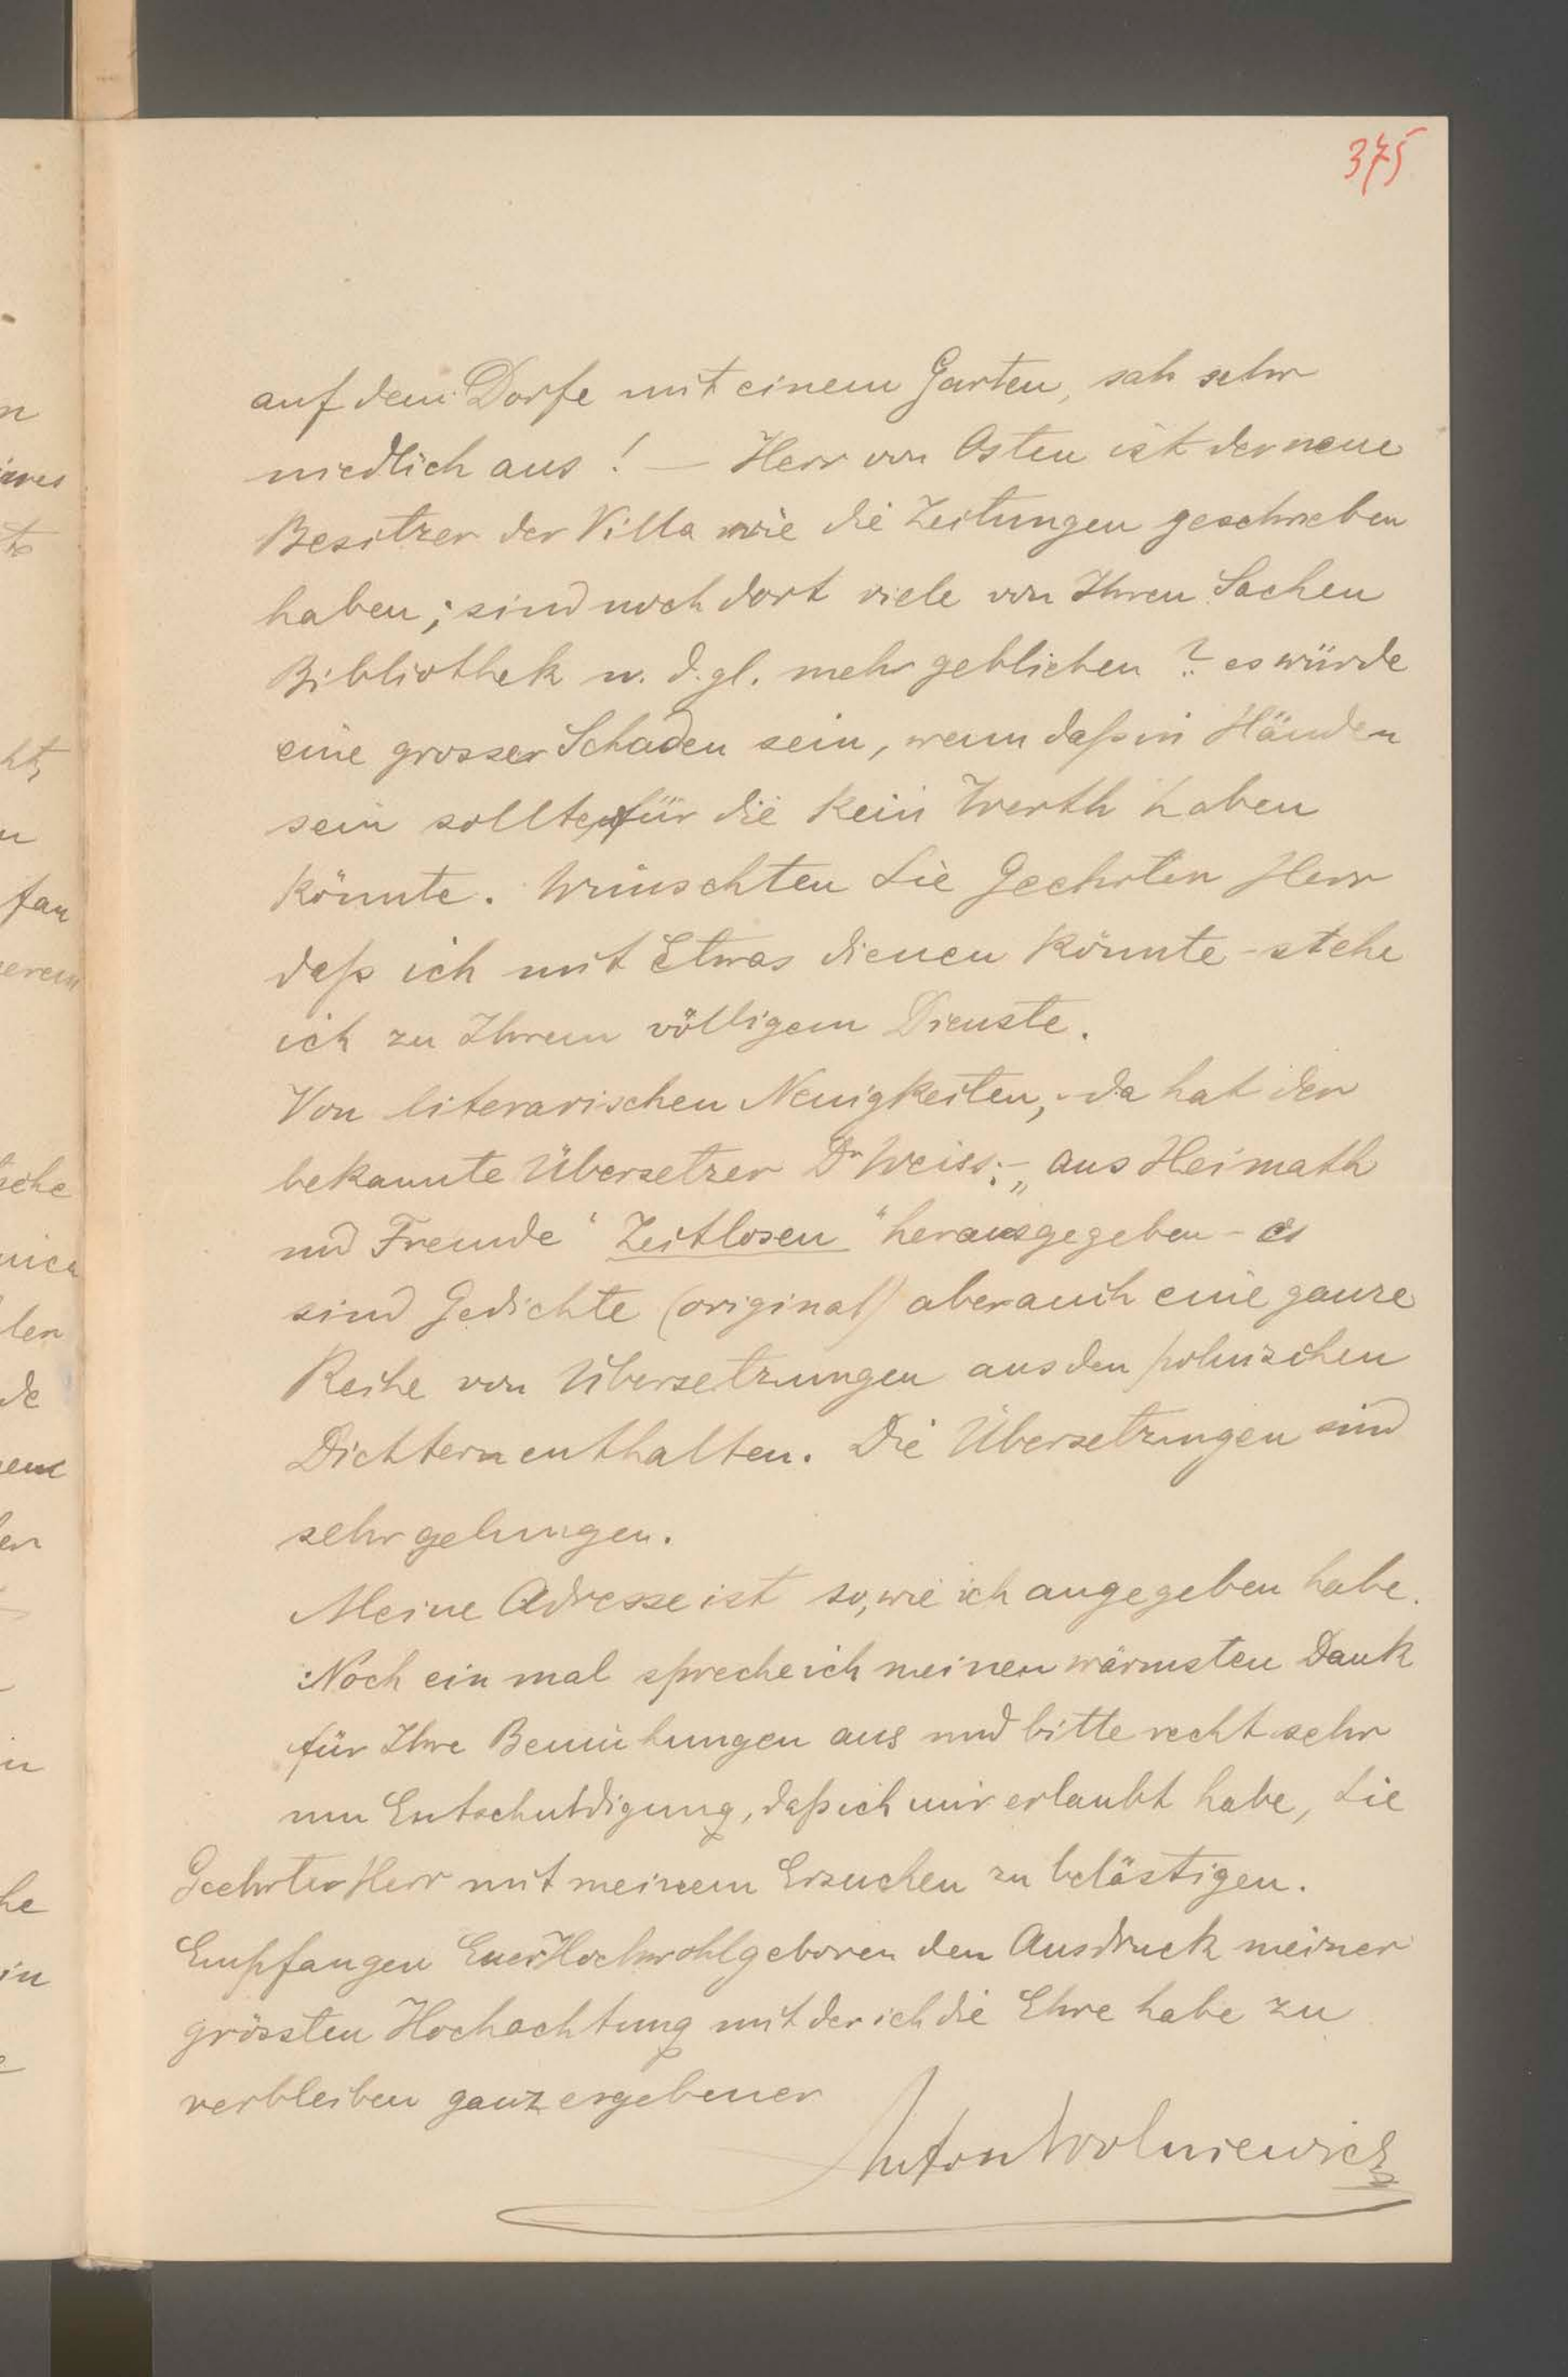 375
auf dem Dorfe mit einem Garten, sah sehr
niedlich aus! — Herr von Osten ist der neue
Besitzer der Villa wie die Zeitungen geschrieben
haben; sind noch dort viele von Ihren Sachen
Bibliothek u. d. gl. mehr geblieben? es würde
eine grosser Schaden sein, wenn daß in Händen
sein sollte für die kein Werth haben
könnte. Wünschten Sie Geehrten Herr
daß ich mit Etwas dienen könnte - stehe
ich zu Ihrem völligem Dienste.
Von literarischen Neuigkeiten, da hat der
bekannte Übersetzer Dr Weiss: - „aus Heimath
und Fremde" Zeitlosen" herausgegeben - es
sind Gedichte (original) aber auch eine ganze
Reihe von Übersetzungen aus den polnischen
Dichtern enthalten. Die Übersetzungen sind
sehr gelungen.
Meine Adresse ist so, wie ich angegeben habe.
Noch ein mal spreche ich meinen wärmsten Dank
für Ihre Bemühungen aus und bitte recht sehr
um Entschuldigung, daß ich mir erlaubt habe, Sie
Geehrter Herr mit meinem Ersuchen zu belästigen.
Empfangen Euer Hochwohlgeboren den Ausdruck meiner
grössten Hochachtung mit der ich die Ehre habe zu
verbleiben ganz ergebener
Anton Wolniewicz